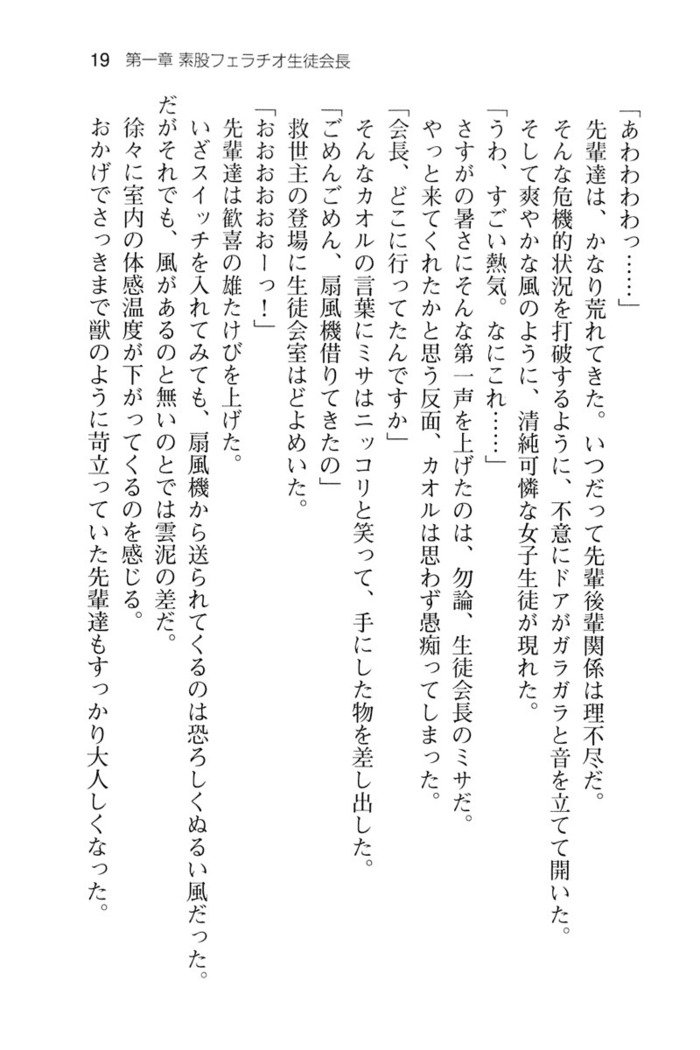 19 第一章 素股フェラチオ生徒会長
「あわわわわっ……」
先輩達は、かなり荒れてきた。いつだって先輩後輩関係は理不尽だ。
そんな危機的状況を打破するように、不意にドアがガラガラと音を立てて開いた。
そして爽やかな風のように、清純可憐な女子生徒が現れた。
「うわ、すごい熱気。なにこれ……」
さすがの暑さにそんな第一声を上げたのは、勿論、生徒会長のミサだ。
やっと来てくれたかと思う反面、カオルは思わず愚痴ってしまった。
「会長、どこに行ってたんですか」
そんなカオルの言葉にミサはニッコリと笑って、手にした物を差し出した。
「ごめんごめん、扇風機借りてきたの」
救世主の登場に生徒会室はどよめいた。
「おおおおおおーっ！」
先輩達は歓喜の雄たけびを上げた。
いざスイッチを入れてみても、扇風機から送られてくるのは恐ろしくぬるい風だった。
だがそれでも、風があるのと無いのとでは雲泥の差だ。
徐々に室内の体感温度が下がってくるのを感じる。
おかげでさっきまで獣のように苛立っていた先輩達もすっかり大人しくなった。